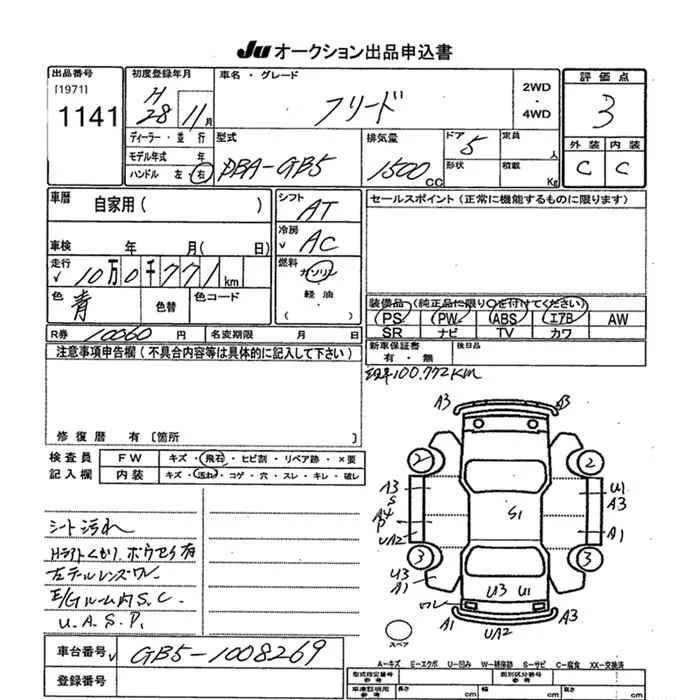 Ju オークション出品申込書
出品番号
[1971]
1141
初度登録年月
H
28 11月
車名・グレード
フリード
2WD
・
4WD
評価点
3
外装 内装
C C
ディーラー・並行
モデル年式 年
ハンドル 左 右
型式
DBA-GB5
排気量
1500 CC
ドア 5
形状
定員 人
積載 Kg
車歴
自家用( )
車検 年 月( 日)
走行
√ 10万0千771km
色 青
色替
色コード
シフト
AT
冷房
√ AC
燃料
ガソリン
・
軽油
( )
セールスポイント(正常に機能するものに限ります)
装備品(純正品に限り○を付けてください)
PS PW ABS エアB AW
SR ナビ TV カワ
R券 10060 円
名変期限 月 日
新車保証書
有・無
後日品
100.772KM
注意事項申告欄(不具合内容等は具体的に記入して下さい)
修復歴 有 [箇所 ]
検査員
記入欄
FW キズ・飛石・ヒビ割・リペア跡・×要
内装 キズ・汚れ・コゲ・穴・スレ・キレ・破レ
シート汚れ
Hライトくもり.ボウセイ有
左テールレンズワレ
E/Gルーム内S.C.
U.A.S.P.
A3 A3
2 2
A3
S
U1
A3
S1
UA2
A1
3 3
U3
A1
U3 U1
ワレ
A1 UA2 A3
スペア
A-キズ E-エクボ U-凹み W-補修跡 S-サビ C-腐食 XX-交換済
車台番号 √ GB5-1008269
登録番号
型式指定番号
参考
類別区分番号
参考
車庫証明用
参考
長さ cm 幅 cm 高さ cm